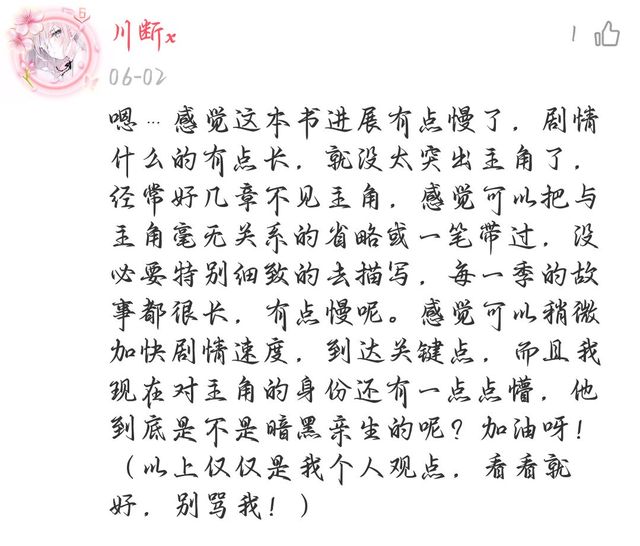 川断x
1
06-02
嗯…感觉这本书进展有点慢了，剧情
什么的有点长，就没太突出主角了，
经常好几章不见主角，感觉可以把与
主角毫无关系的省略或一笔带过，没
必要特别细致的去描写，每一季的故
事都很长，有点慢呢。感觉可以稍微
加快剧情速度，到达关键点，而且我
现在对主角的身份还有一点点懵，他
到底是不是暗黑亲生的呢？加油呀！
（以上仅仅是我个人观点，看看就
好，别骂我！）